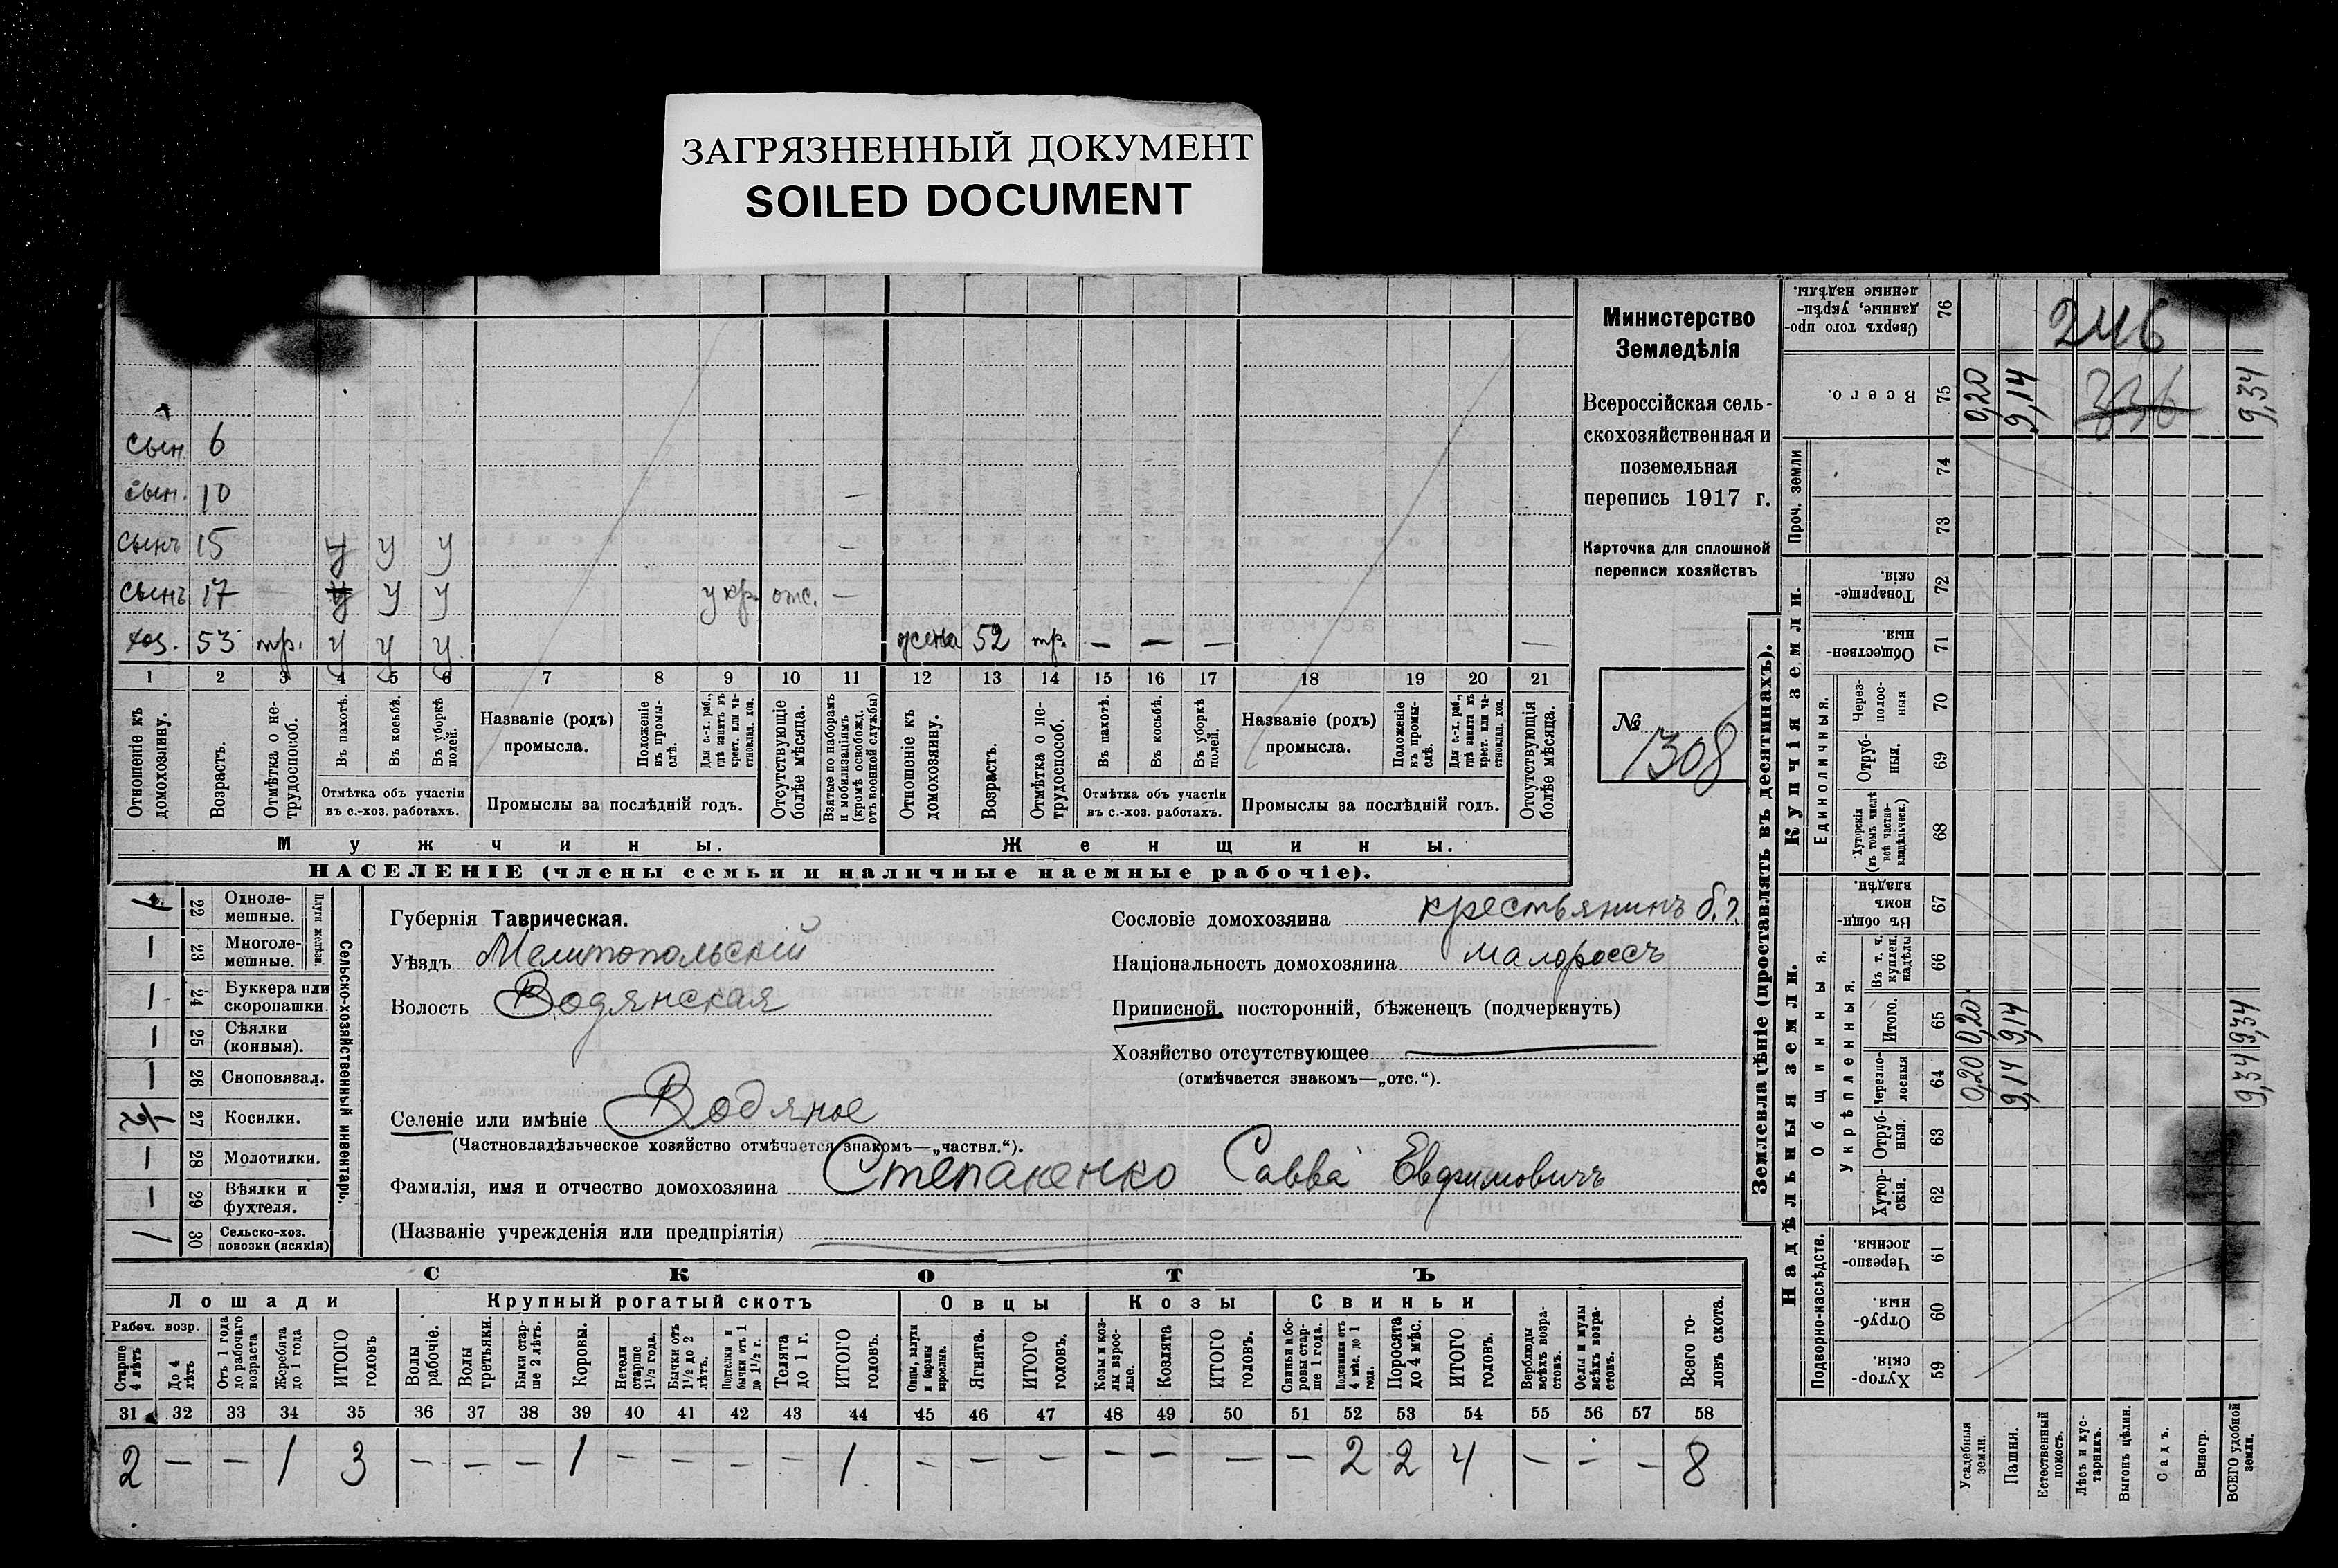 ЗАГРЯЗНЕННЫЙ ДОКУМЕНТ
SOILED DOCUMENT
сын. 6
сын. 10
сынъ 15 у у у
сынъ 17 у у у укр. отс. —
хоз. 53 тр. у у у жена 52 тр. — — — —
1 2 3 4 5 6 7 8 9 10 11 12 13 14 15 16 17 18 19 20 21
Отношеніе къ домохозяину.
Возрастъ.
Отмѣтка о не-трудоспособ.
Въ пахотѣ.
Въ косьбѣ.
Въ уборкѣ полей.
Отмѣтка объ участіи
въ с.-хоз. работахъ.
Названіе (родъ)
промысла.
Положеніе въ промы-слѣ.
Для с.-х. раб., гдѣ занятъ въ крест. или ча-стновлад. хоз.
Промыслы за послѣдній годъ.
Отсутствующіе болѣе мѣсяца.
Взятые по наборамъ и мобилизаціямъ (кромѣ освобожд. отъ военной службы)
Отношеніе къ домохозяину.
Возрастъ.
Отмѣтка о не-трудоспособ.
Въ пахотѣ.
Въ косьбѣ.
Въ уборкѣ полей.
Отмѣтка объ участіи
въ с.-хоз. работахъ.
Названіе (родъ)
промысла.
Положеніе въ промы-слѣ.
Для с.-х. раб., гдѣ занята въ крест. или ча-стновлад. хоз.
Промыслы за послѣдній годъ.
Отсутствующія болѣе мѣсяца.
Мужчины.
Женщины.
НАСЕЛЕНІЕ (члены семьи и наличные наемные рабочіе).
Министерство
Земледѣлія
Всероссійская сель-
скохозяйственная и
поземельная
перепись 1917 г.
Карточка для сплошной
переписи хозяйствъ
№
1308
Сельско-хозяйственный инвентарь.
Плуги желѣзн.
22 Одноле-мешные.
— 23 Многоле-мешные.
— 24 Буккера или скоропашки.
— 25 Сѣялки (конныя).
— 26 Сноповязал.
1/2 27 Косилки.
— 28 Молотилки.
— 29 Вѣялки и фухтеля.
1 30 Сельско-хоз. повозки (всякія)
Губернія Таврическая.
Уѣздъ Мелитопольскій
Волость Водянская
Селеніе или имѣніе Водяное
(Частновладѣльческое хозяйство отмѣчается знакомъ—„частвл.“).
Фамилія, имя и отчество домохозяина Степаненко Савва Евфимовичъ
(Названіе учрежденія или предпріятія)
Сословіе домохозяина крестьянинъ
Національность домохозяина малороссъ
Приписной, посторонній, бѣженецъ (подчеркнуть)
Хозяйство отсутствующее —
(отмѣчается знакомъ—„отс.“).
СКОТЪ
Лошади
Крупный рогатый скотъ
Овцы
Козы
Свиньи
Рабоч. возр.
Старше 4 лѣтъ
До 4 лѣтъ
Отъ 1 года до рабочаго возраста
Жеребята до 1 года
ИТОГО головъ
Волы рабочіе.
Волы третьяки.
Быки стар-ше 2 лѣтъ.
Коровы.
Нетели старше 1½ года.
Бычки отъ 1½ до 2 лѣтъ.
Подтелки и бычки отъ 1 до 1½ г.
Телята до 1 г.
ИТОГО головъ.
Овцы, валухи и бараны взрослые.
Ягнята.
ИТОГО головъ.
Козы и коз-лы взрос-лые.
Козлята
ИТОГО головъ.
Свиньи и бо-ровы стар-ше 1 года.
Подсвинки отъ 4 мѣс. до 1 года.
Поросята до 4 мѣс.
ИТОГО головъ.
Верблюды всѣхъ возра-стовъ.
Ослы и мулы всѣхъ возра-стовъ.
Всего го-ловъ скота.
31 32 33 34 35 36 37 38 39 40 41 42 43 44 45 46 47 48 49 50 51 52 53 54 55 56 57 58
2 — — 1 3 — — — 1 — — — — 1 — — — — — — — 2 2 4 — — — 8
Землевладѣніе (проставлять въ десятинахъ).
Купчія земли.
Надѣльныя земли.
Сверхъ того про-данные, укрѣп-ленные надѣлы. 76
246
Всего. 75 0,20 9,14 336 9,34
Проч. земли
74
73
Товарище-скія. 72
Обществен-ныя. 71
Единоличныя.
Через-полос-ныя 70
Отруб-ныя. 69
Хуторскія (въ томъ числѣ всѣ частно-владѣльческ.) 68
Общинныя.
Въ общин-номъ владѣн. 67
Укрѣпленныя.
Въ т. ч. куплен. надѣлы 66
Итого. 65 0,20 9,14 9,34
Черезпо-лосныя 64 0,20 9,14 9,34
Отруб-ныя. 63
Хутор-скія. 62
Подворно-наслѣдств.
Черезпо-лосныя. 61
Отруб-ныя. 60
Хутор-скія. 59
Усадебныя земли.
Пашня.
Естественный покосъ.
Лѣсъ и кус-тарникъ.
Выгонъ цѣлин.
Садъ.
Виногр.
ВСЕГО удобной земли.